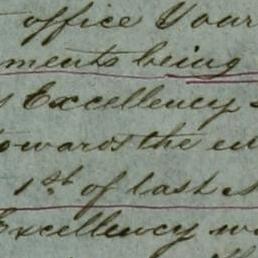 office Your
ments being
Excellency
towards the
1st of last
Excellency